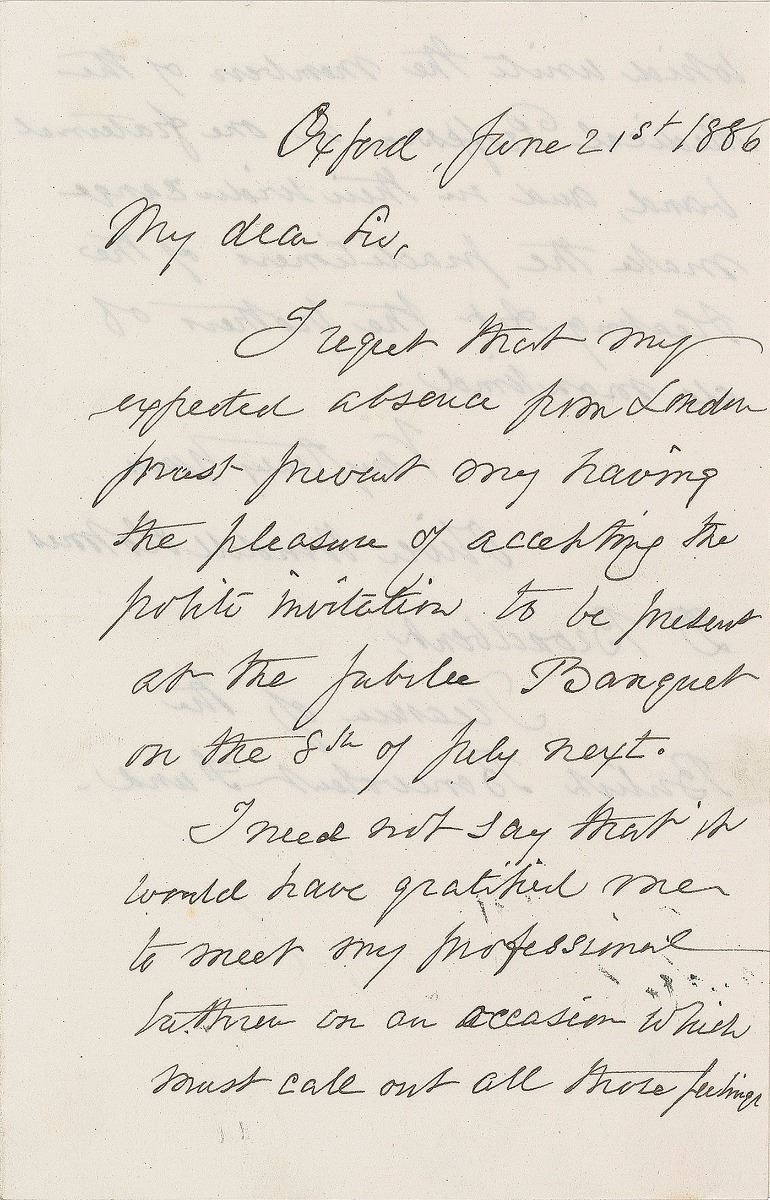 Oxford, June 21st 1886
My dear Sir,
I regret that my
expected absence from London
must prevent my having
the pleasure of accepting the
polite invitation to be present
at the Jubilee Banquet
on the 8th of July next.
I need not say that it
would have gratified me
to meet my professional
brethren on an occasion which
must call out all those feelings